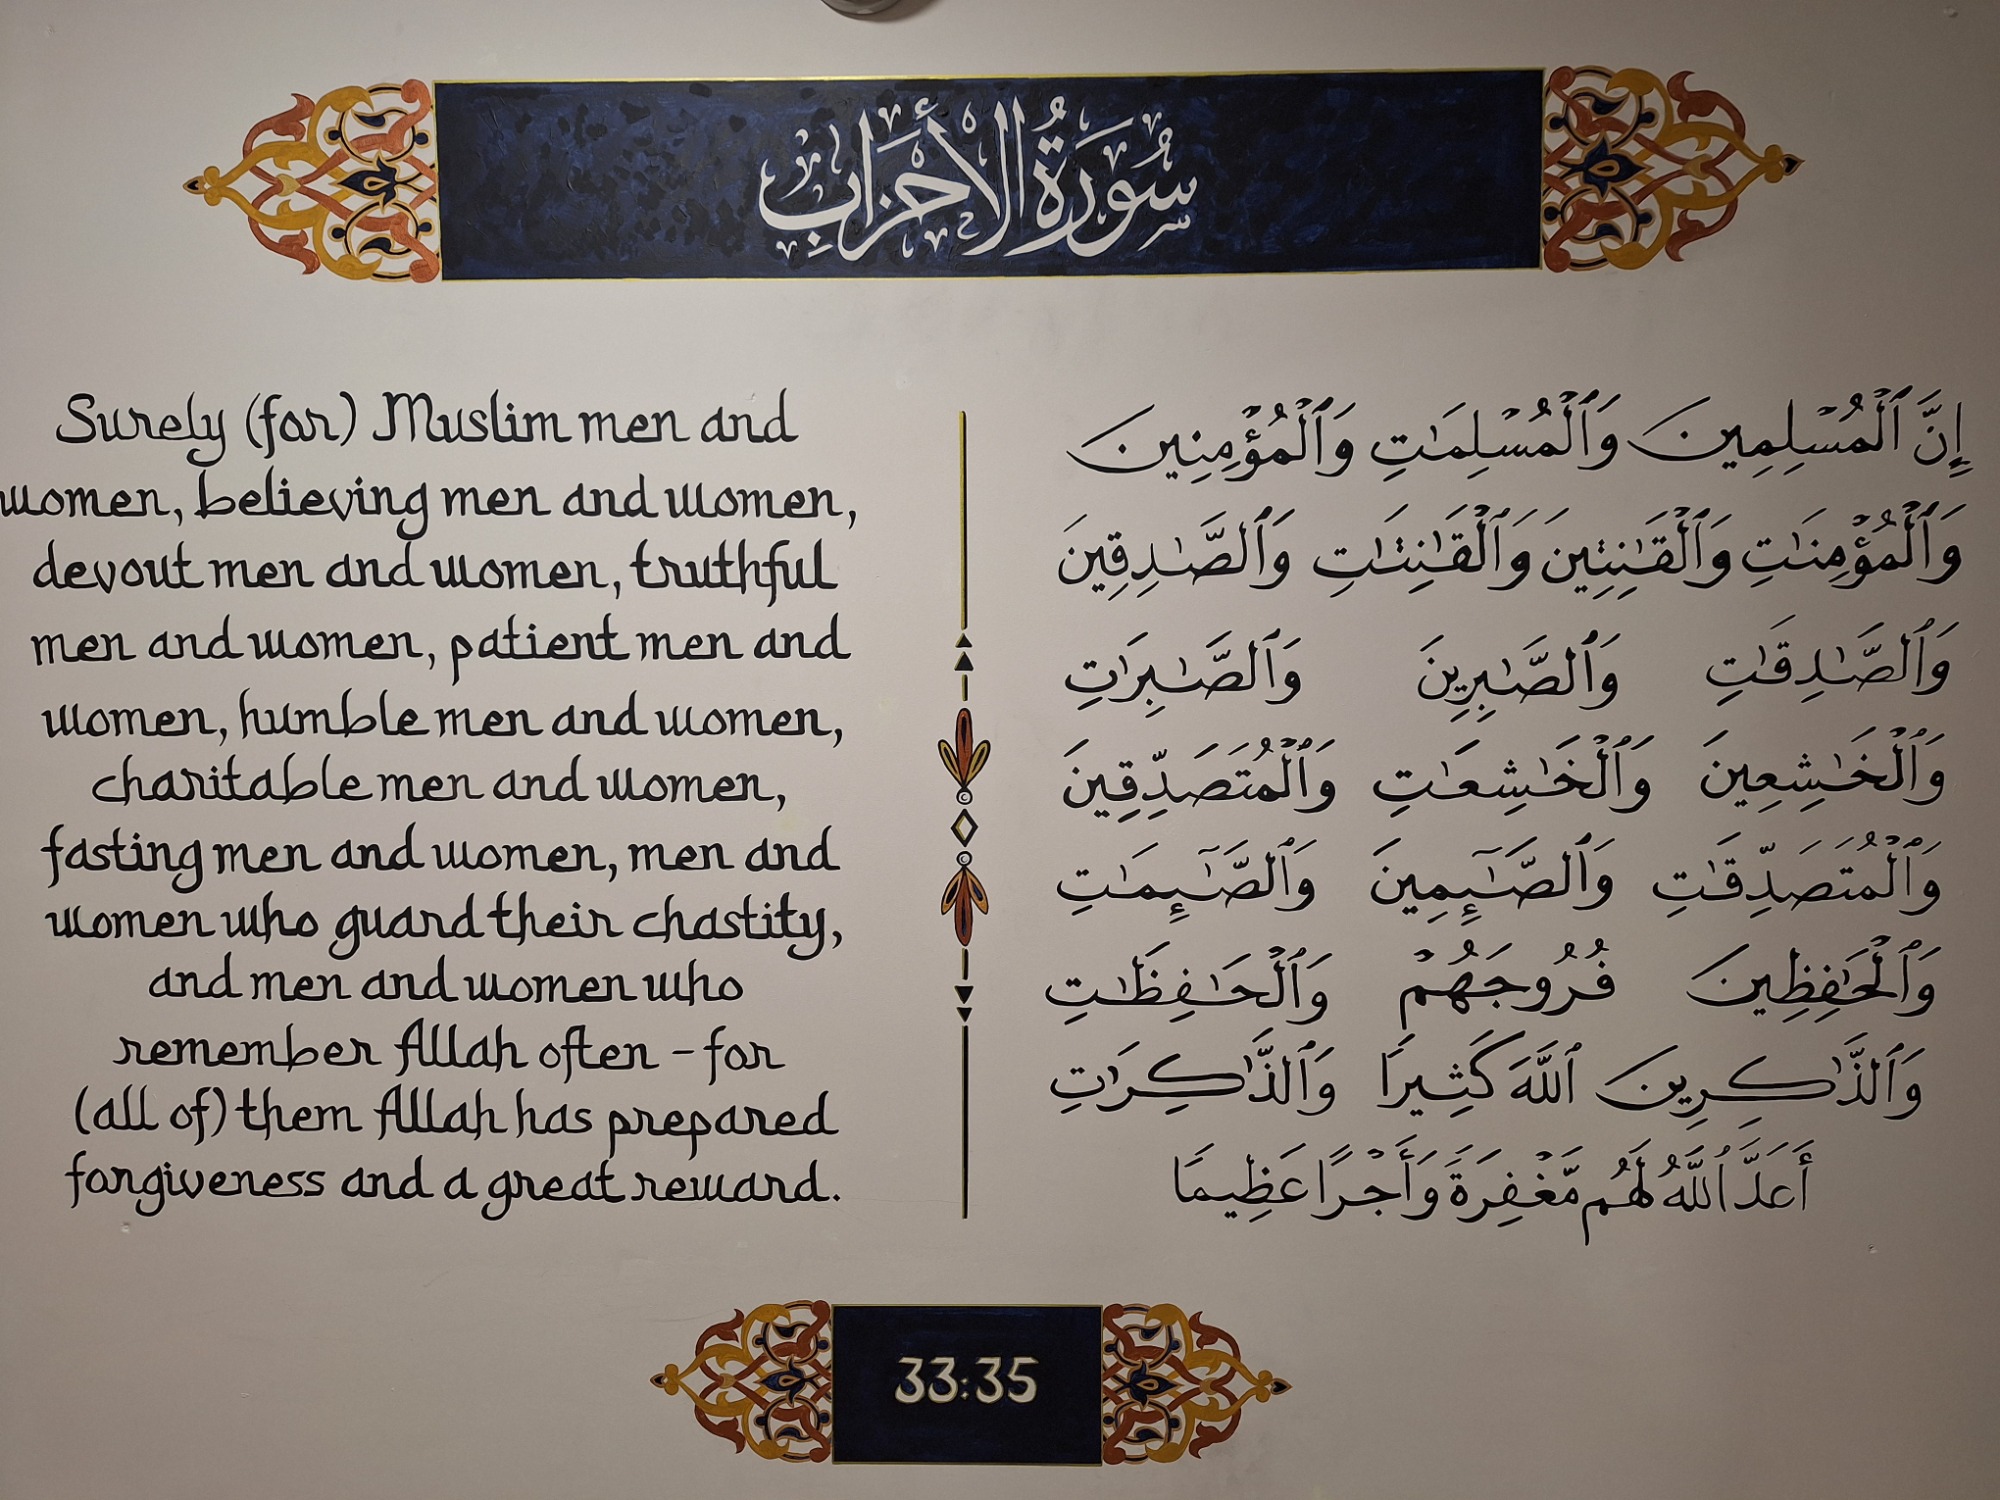 سُورَةُ الأَحْزَابِ
Surely (for) Muslim men and
women, believing men and women,
devout men and women, truthful
men and women, patient men and
women, humble men and women,
charitable men and women,
fasting men and women, men and
women who guard their chastity,
and men and women who
remember Allah often - for
(all of) them Allah has prepared
forgiveness and a great reward.
إِنَّ ٱلْمُسْلِمِينَ وَٱلْمُسْلِمَـٰتِ وَٱلْمُؤْمِنِينَ
وَٱلْمُؤْمِنَـٰتِ وَٱلْقَـٰنِتِينَ وَٱلْقَـٰنِتَـٰتِ وَٱلصَّـٰدِقِينَ
وَٱلصَّـٰدِقَـٰتِ وَٱلصَّـٰبِرِينَ وَٱلصَّـٰبِرَٰتِ
وَٱلْخَـٰشِعِينَ وَٱلْخَـٰشِعَـٰتِ وَٱلْمُتَصَدِّقِينَ
وَٱلْمُتَصَدِّقَـٰتِ وَٱلصَّـٰٓئِمِينَ وَٱلصَّـٰٓئِمَـٰتِ
وَٱلْحَـٰفِظِينَ فُرُوجَهُمْ وَٱلْحَـٰفِظَـٰتِ
وَٱلذَّٰكِرِينَ ٱللَّهَ كَثِيرًا وَٱلذَّٰكِرَٰتِ
أَعَدَّ ٱللَّهُ لَهُم مَّغْفِرَةً وَأَجْرًا عَظِيمًا
33:35